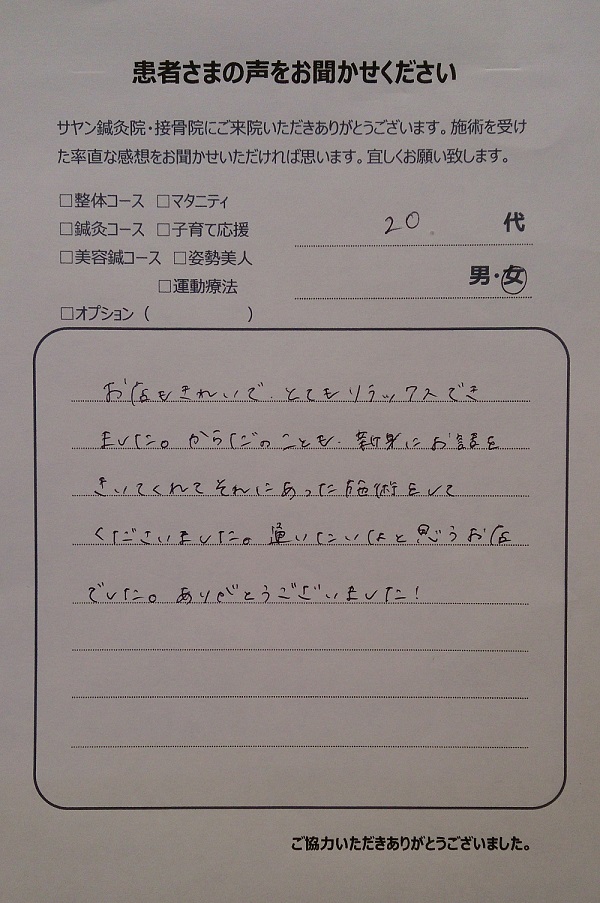 患者さまの声をお聞かせください
サヤン鍼灸院・接骨院にご来院いただきありがとうございます。施術を受け
た率直な感想をお聞かせいただければ思います。宜しくお願い致します。
□整体コース □マタニティ
□鍼灸コース □子育て応援
□美容鍼コース □姿勢美人
□運動療法
□オプション（　　　　　　）
20 代
男・女
お店もきれいで、とてもリラックスでき
ました。からだのことも、親身にお話を
きいてくれてそれにあった施術をして
くださいました。通いたいなと思うお店
でした。ありがとうございました！
ご協力いただきありがとうございました。